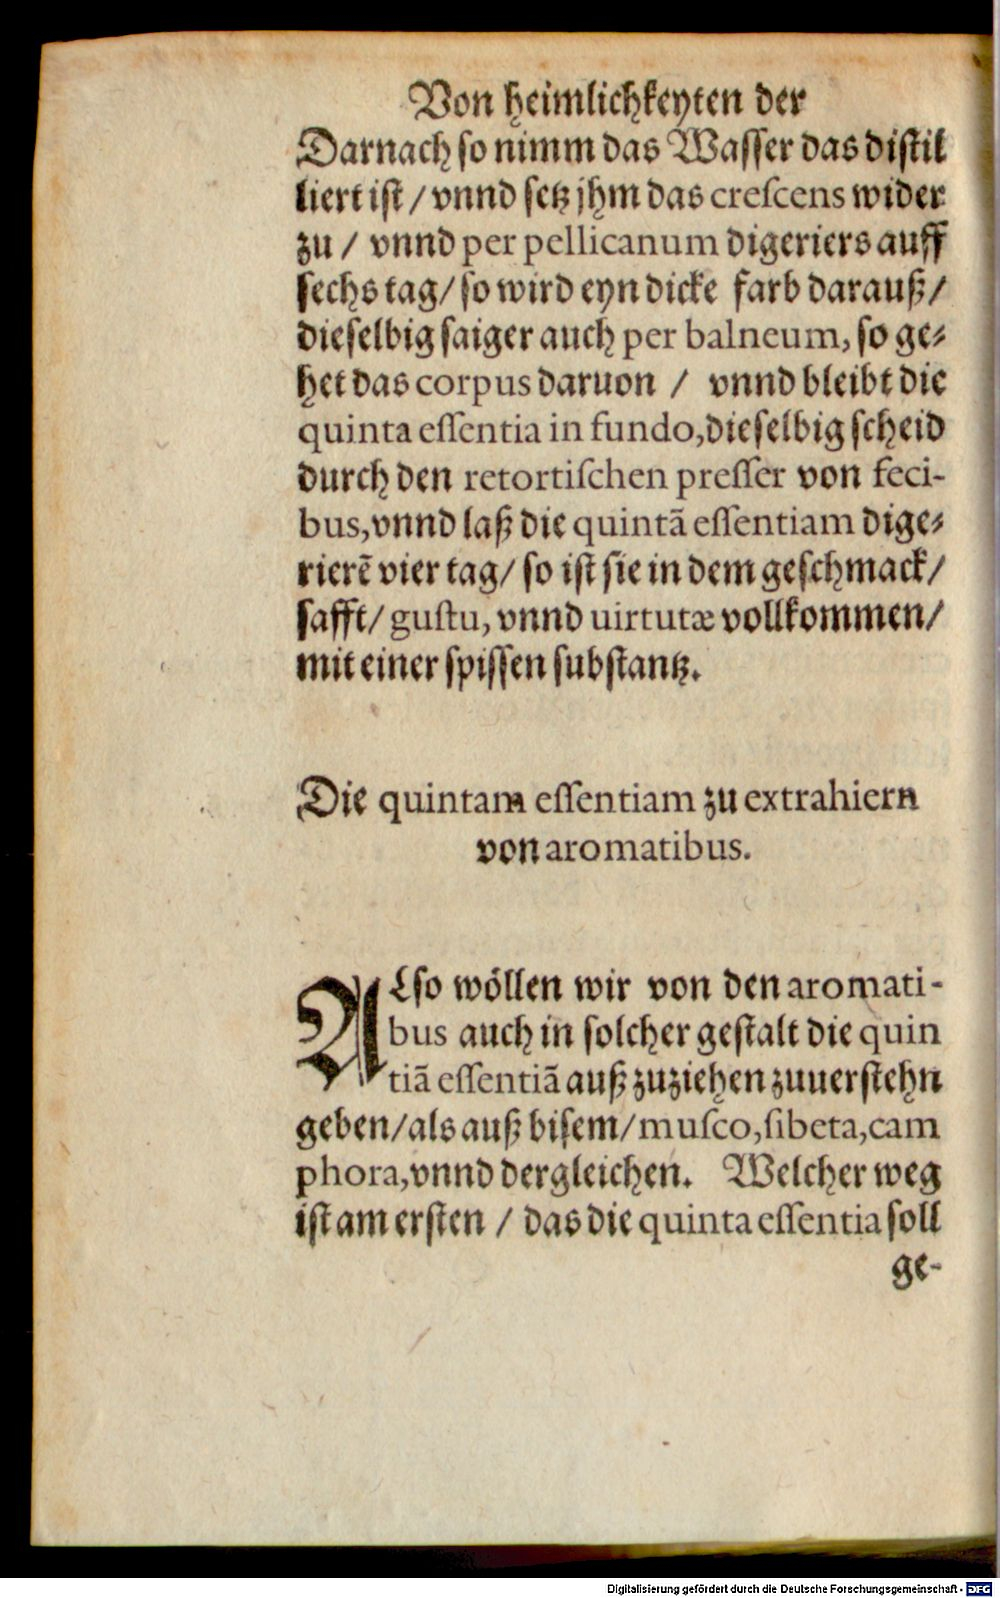 Von heimlichkeyten der
Darnach so nimm das Wasser das distil
liert ist / vnnd setz jhm das crescens wider
zu / vnnd per pellicanum digeriers auff
sechs tag / so wird eyn dicke farb darauß /
dieselbig saiger auch per balneum, so ge⸗
het das corpus daruon / vnnd bleibt die
quinta essentia in fundo, dieselbig scheid
durch den retortischen presser von feci-
bus, vnnd laß die quintā essentiam dige⸗
rierē vier tag / so ist sie in dem geschmack /
safft / gustu, vnnd uirtutæ vollkommen /
mit einer spissen substantz.
Die quintam essentiam zu extrahiern
von aromatibus.
ALso wöllen wir von den aromati-
bus auch in solcher gestalt die quin
tiā essentiā auß zuziehen zuuerstehn
geben / als auß bisem / musco, sibeta, cam
phora, vnnd dergleichen. Welcher weg
ist am ersten / das die quinta essentia soll
ge-
Digitalisierung gefördert durch die Deutsche Forschungsgemeinschaft - DFG